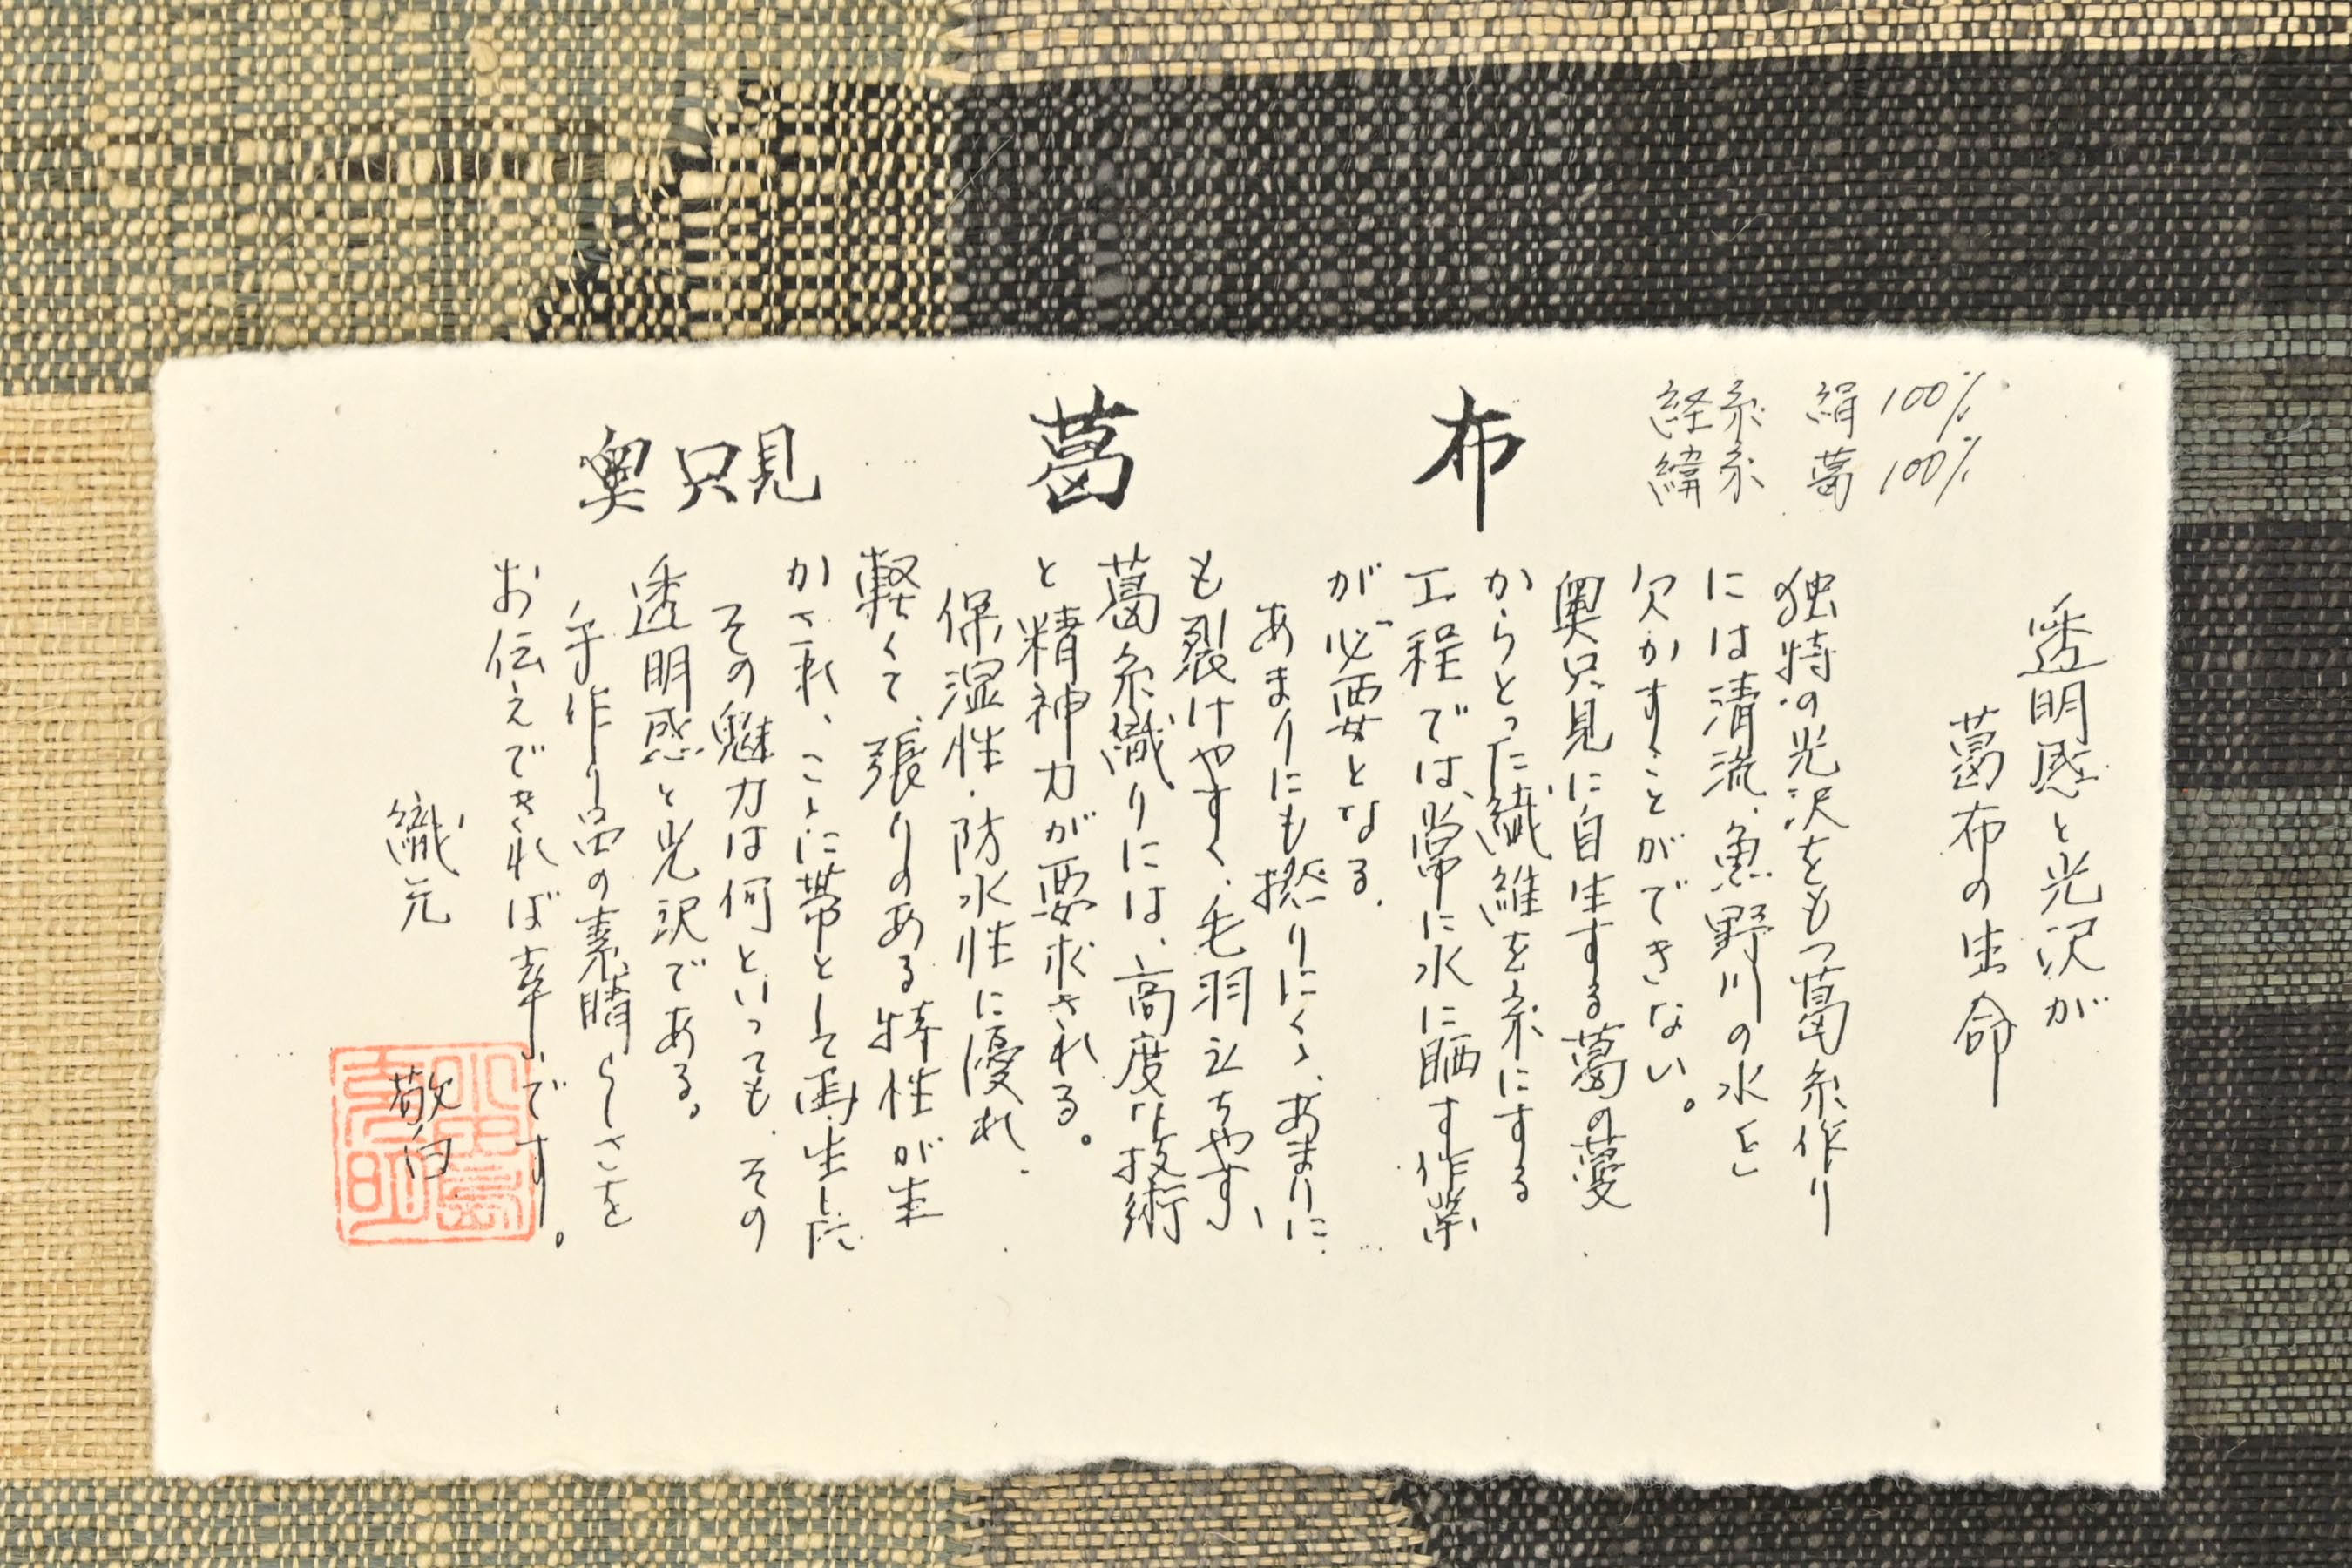 奥只見 葛 布
経糸 絹 100%
緯糸 葛 100%
透明感と光沢が
葛布の生命
独特の光沢をもつ葛糸作り
には清流、魚野川の水を
欠かすことができない。
奥只見に自生する葛の蔓
からとった繊維を糸にする
工程では、常に水に晒す作業
が必要となる。
あまりにも撚りにくく、あまりに
も裂けやすく、毛羽立ちやすい、
葛糸織りには、高度な技術
と精神力が要求される。
保湿性・防水性に優れ、
軽くて、張りのある特性が生
かされ、ここに帯として再生した
その魅力は何といっても、その
透明感と光沢である。
手作り品の素晴らしさを
お伝えできれば幸いです。
織元
敬白